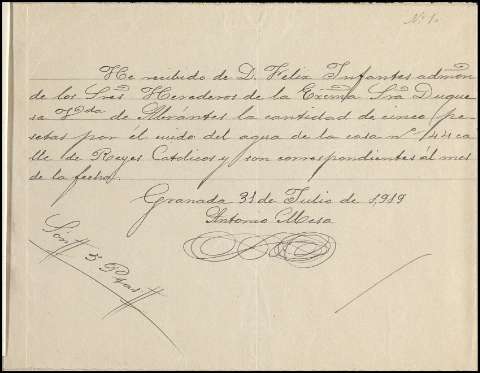 Nº 1.
He recibido de D. Felix Infantes admón
de los Sres Herederos de la Excma Sra Duque
sa Vda de Abrántes la cantidad de cinco pe
setas por él cuido del agua de la casa nº 44 ca
lle de Reyes Catolicos y son correspondientes ál mes
de la fecha.
Granada 31 de Julio de 1919
Antonio Mesa
Son 5 Ptas